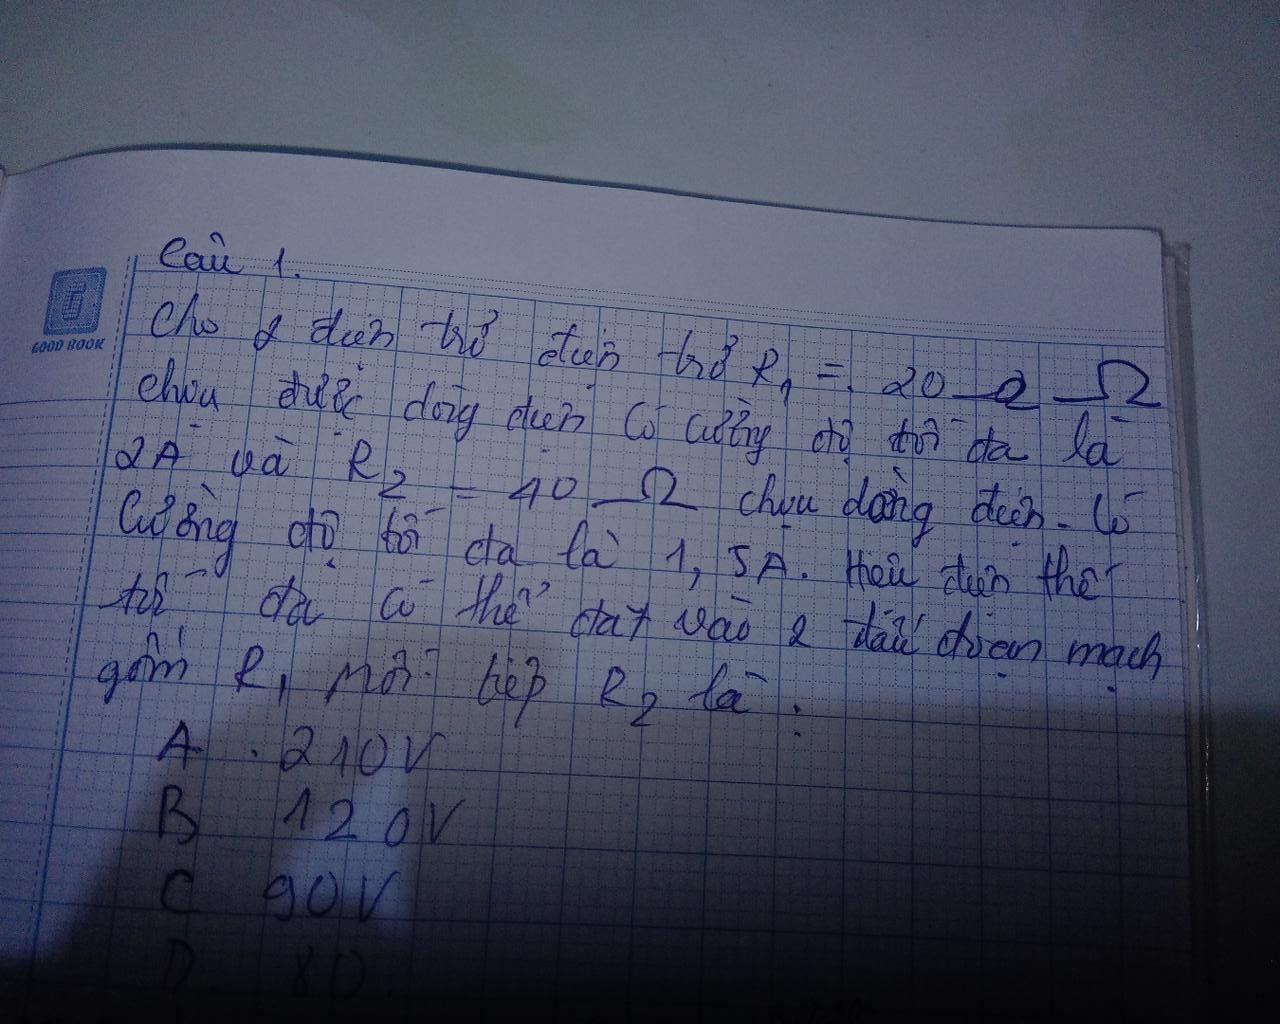 Câu 1.
GOOD BOOK
Cho 2 điện trở điện trở R1 = 20 Ω
chịu được dòng điện có cường độ tối đa là
2A và R2 = 40 Ω chịu dòng điện có
cường độ tối đa là 1,5A. Hiệu điện thế
tối đa có thể đặt vào 2 đầu đoạn mạch
gồm R1 nối tiếp R2 là:
A. 210V
B 120V
C 90V
D 80